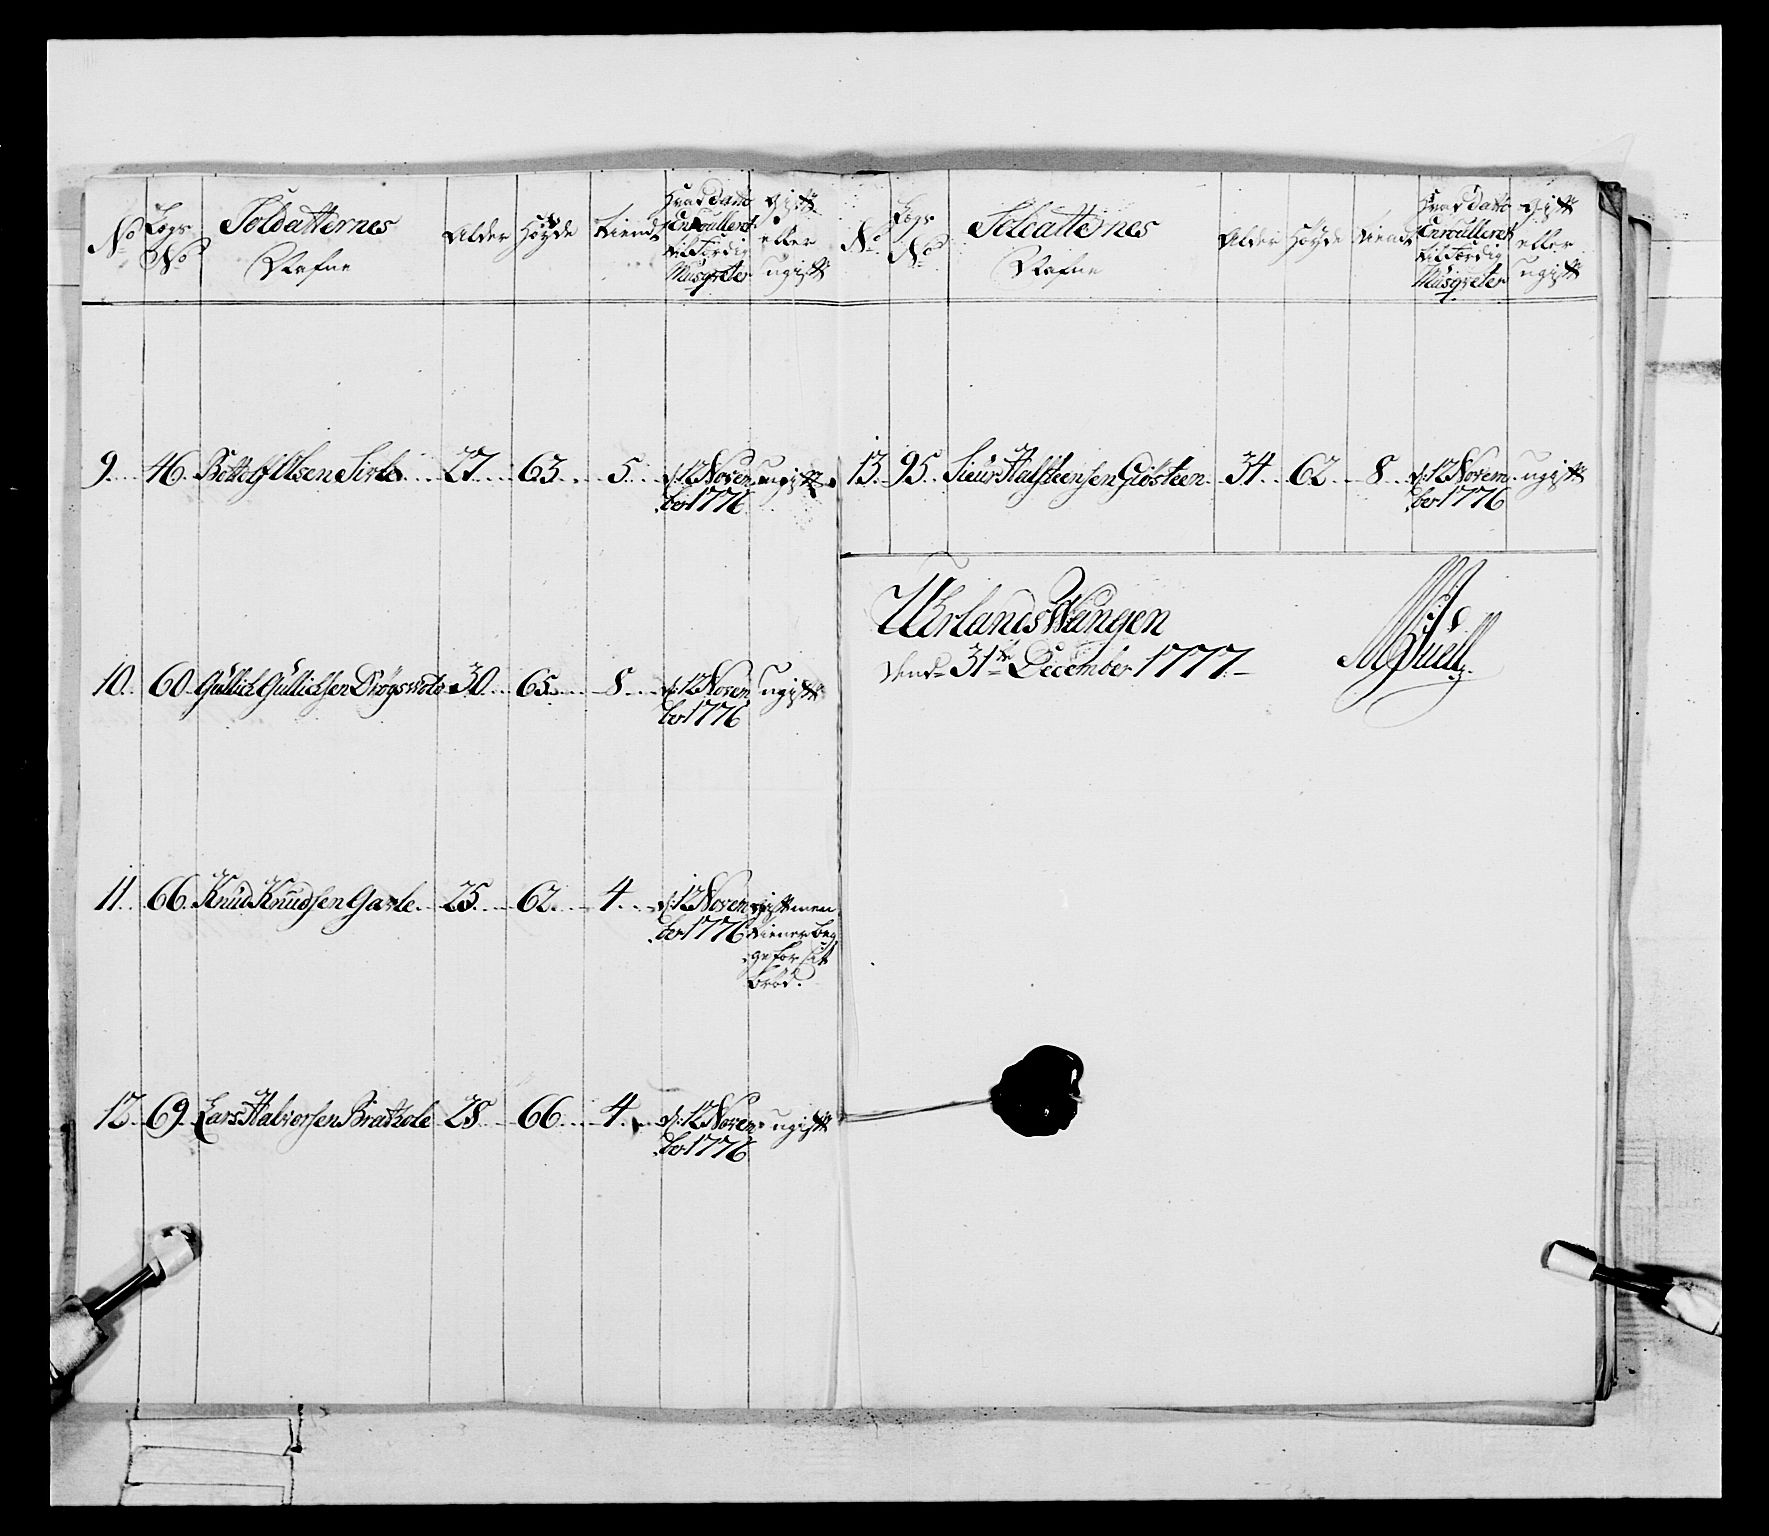 No Lægs No Soldatternes Nafne Alder Høyde Tiendt Hvad Dato Enroulleret til Færdig Musqveter gift eller ugift
9 46 Bottolf Olsen Sirle 27 63 5 d: 12 Novem-
ber 1776 ugift
10 60 Gullick Gullicksen Drögsvold 30 65 8 d: 12 Novem
ber 1776 ugift
11 66 Knud Knudsen Garle 25 62 4 d: 12 Novem
ber 1776 gift men
tiener beg
ge for sit
brød.
12 69 Lars Halvorsen Brathole 28 66 4 d: 12 Novem-
ber 1776 ugift
No Lægs No Soldatternes Nafne Alder Høyde Tiendt Hvad Dato Enroulleret til Færdig Musqveter gift eller ugift
13 95 Siur Halsteensen Giösteen 34 62 8 d: 12 Novem-
ber 1776 ugift
Urlands Wangen
Dend 31te December 1777